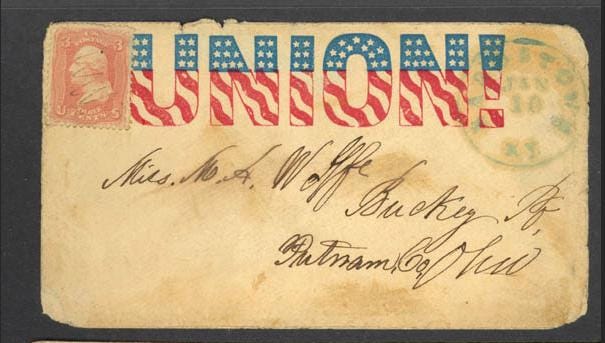 UNION!
U.S. POSTAGE
3 3
U THREE CENTS S
BARDSTOWN
JAN
10
KY.
Miss. M. A. Wolffe
Buckey P.
Putnam, Co, Ohio